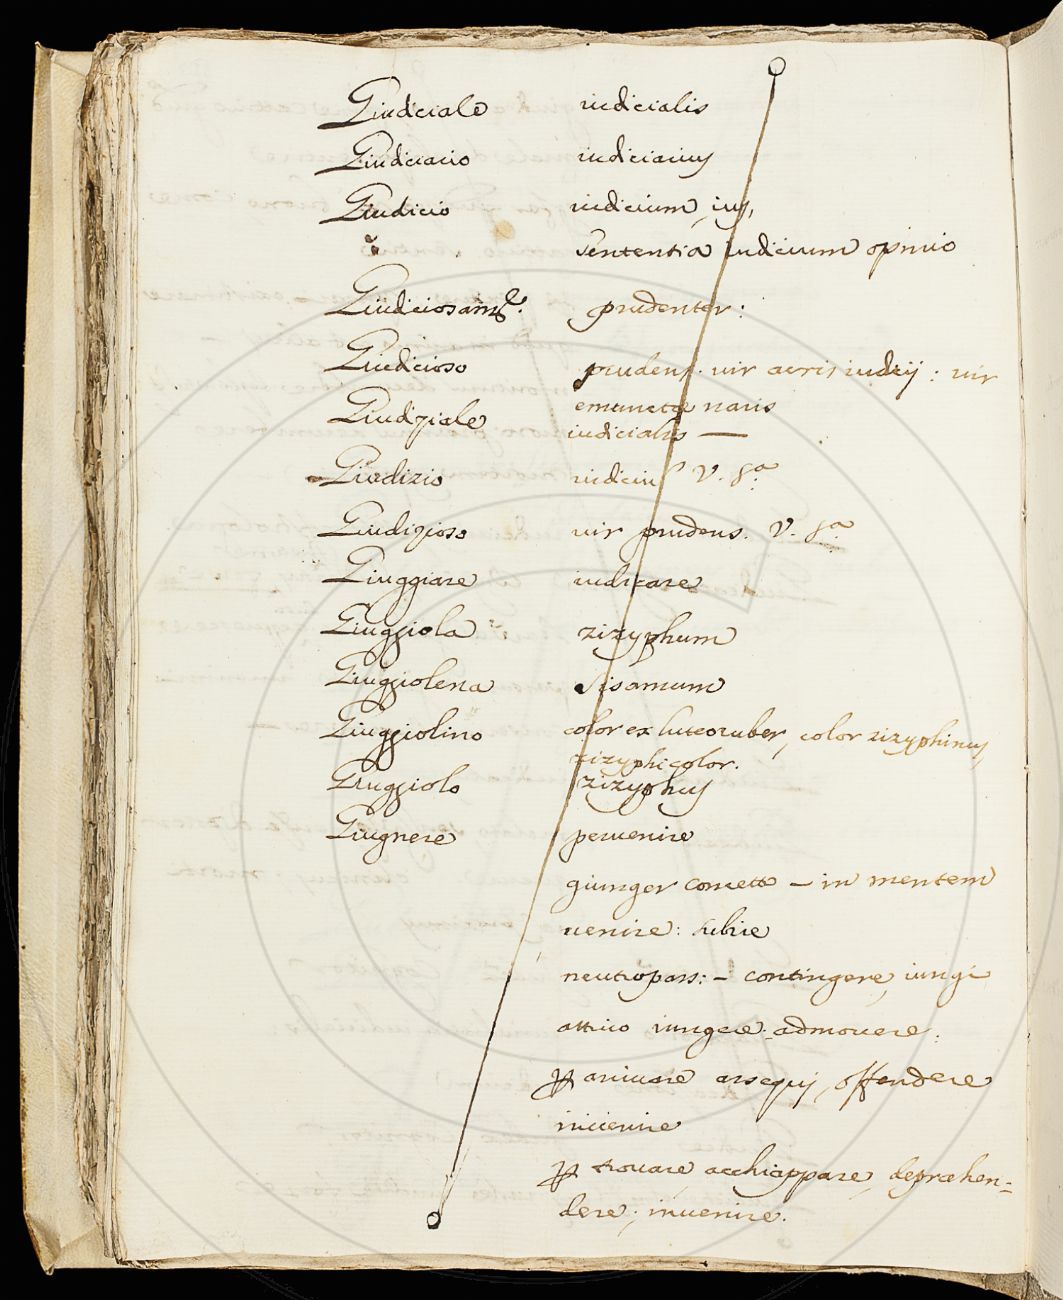 Giudiciale iudicialis
Giudiciario iudiciarius
Giudicio iudicium, ius,
sententia iudicium opinio
Giudiciosam.e prudenter:
Giudicioso prudens. vir acris iudicij: vir
emunctæ naris
Giudiziale iudicialis —
Giudizio iudiciu V. S.a
Giudizioso vir prudens. V. S.a
Giuggiare iudicare
Giuggiola zizyphum
Giuggiolena Sisamum
Giuggiolino color ex luteo ruber, color zizyphinus,
zizyphicolor.
Giuggiolo zizyphus
Giugnere peruenire
giunger — in mentem
uenire: subire
neutropass: — contingere, iungi
attiuo iungere: admouere:
p arriuare assequi, offendere
inuenire
p trouare, acchiappare, depræhen=
dere, inuenire.